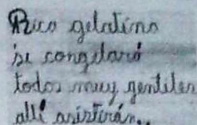 Rico gelatina
se congelará
todos muy gentiles
allí asistirán.